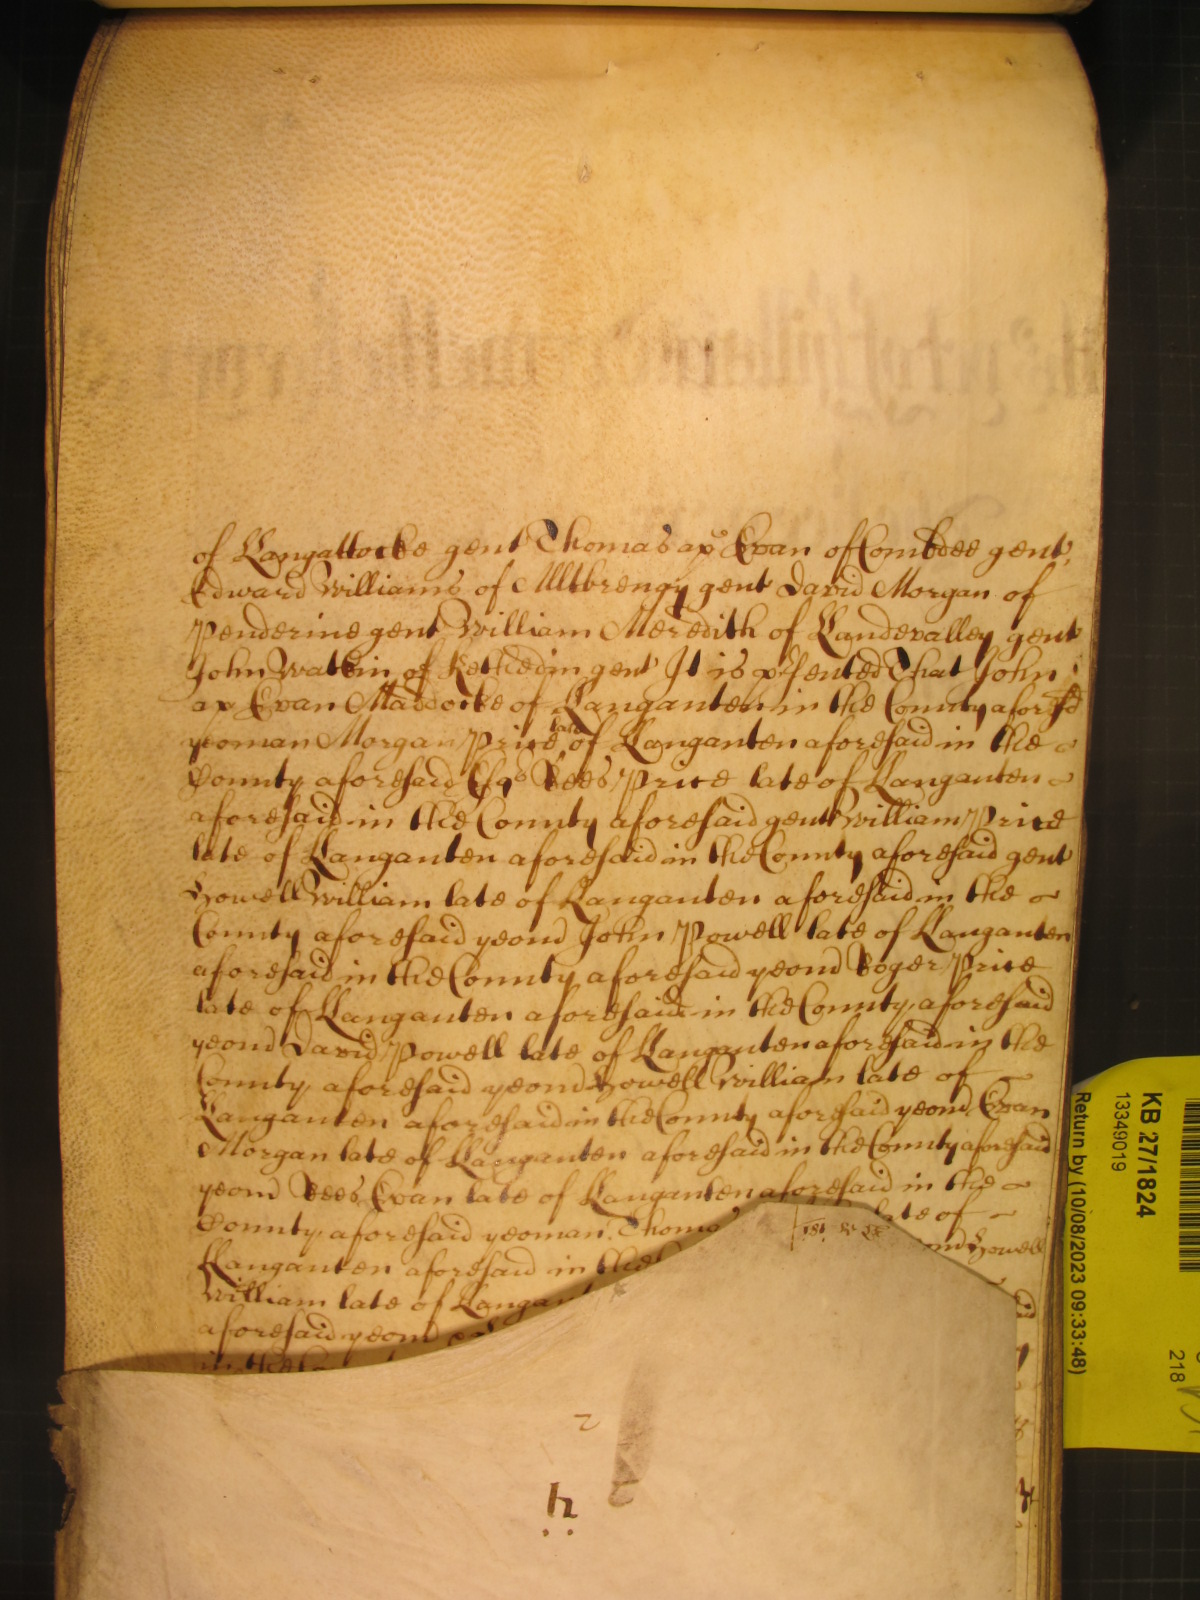 of Llangattocke gent Thomas ap Evan of Combdee gent
Edward Williams of Alltbrengy gent David Morgan of
Penderine gent William Meredith of Llandevalley gent
John Watkin of Kethedin gent It is p'sented That John
ap Evan Maddocke of Llanganten in the County aforesd
yeoman Morgan Price late of Llanganten aforesaid in the
County aforesaid Esqr Rees Price late of Llanganten
aforesaid in the County aforesaid gent William Price
late of Llanganten aforesaid in the County aforesaid gent
Howell William late of Llanganten aforesaid in the
County aforesaid yeom John Powell late of Llanganten
aforesaid in the County aforesaid yeom Roger Price
late of Llanganten aforesaid in the County aforesaid
yeom David Powell late of Llanganten aforesaid in the
County aforesaid yeom Howell William late of
Llanganten aforesaid in the County aforesaid yeom Evan
Morgan late of Llanganten aforesaid in the County aforesaid
yeom Rees Evan late of Llanganten aforesaid in the
County aforesaid yeoman Thoma late of
Llanganten aforesaid in the Howell
William late of Llangan
aforesaid yeom
in the Co
KB 27/1824
13349019
Return by (10/08/2023 09:33:48)
218